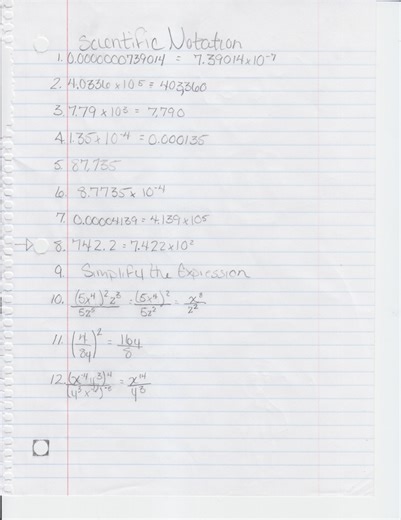 Scientific Notation
1. 0.0000000739014 = 7.39014 x 10^-7
2. 4.0336 x 10^5 = 403,360
3. 7.79 x 10^3 = 7,790
4. 1.35 x 10^-4 = 0.000135
5. 87,735
6. 8.7735 x 10^-4
7. 0.00004139 = 4.139 x 10^5
8. 742.2 = 7.422 x 10^2
9. Simplify the Expression
10. (5x^4)^2 z^3 / 5z^5 = (5x^4)^2 / 5z^2 = x^8 / z^2
11. (4 / 8y)^2 = 16y / 8